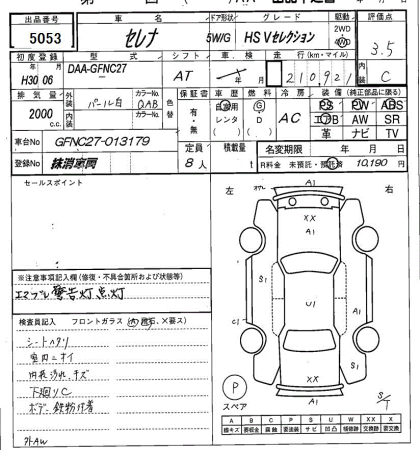 出品番号 車名 ドア形状 グレード 駆動 評価点
5053 セレナ 5W/G HS Vセレクション 2WD 4WD 3.5
初度登録 型式 シフト 車検 走行(km・マイル) 内装
H30年 06月 DAA-GFNC27 AT 年 月 210,921 C
排気量 外装 色 カラーNo. 色替 保証書 車歴 燃料 冷房 装備(純正部品に限る)
2000 c.c. パール白 QAB 有・無 自家用 レンタ G D AC PS PW ABS
内装 色 カラーNo. エアB AW SR
革 ナビ TV
車台No GFNC27-013179 定員 積載量 名変期限 年 月 日
登録No 抹消車両 8人 t R料金 未預託・預託済 10,190円
セールスポイント
左 右
A1
XX
A1
A1
S1
C1
U1
S1
XX
A1
※注意事項記入欄(修復・不具合箇所および状態等)
エマブレ警告灯点灯
検査員記入 フロントガラス(A、飛石、X要ス)
シートヘタリ
室内ニオイ
内装汚れ、キズ
下廻りC
ボデー鉄粉付着
外AW
P
スペア
S/T
A B C P S U W X XX
線キズ 要板金 腐食 要塗装 サビ 凹凸 補修跡 要交換 交換跡